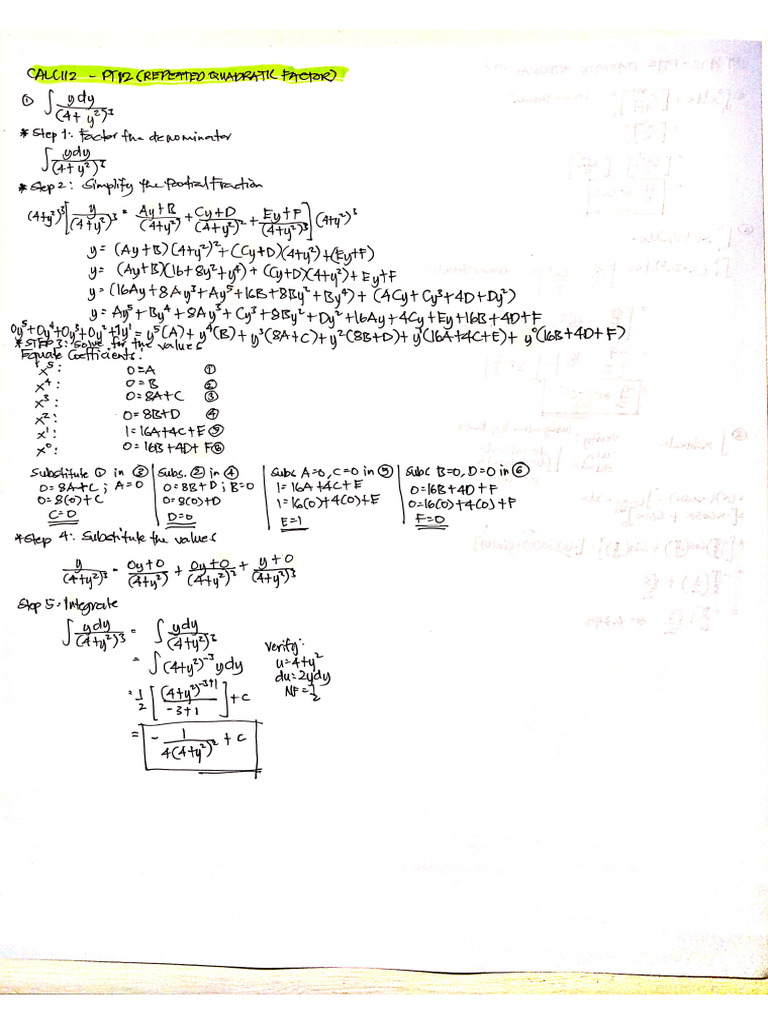 CALC112 - PT#2 (REPEATED QUADRATIC FACTOR)
① ∫ ydy/(4+y²)³
* Step 1: Factor the denominator
∫ ydy/(4+y²)³
* Step 2: Simplify the Partial Fraction
(4+y²)³ [ y/(4+y²)³ = Ay+B/(4+y²) + Cy+D/(4+y²)² + Ey+F/(4+y²)³ ] (4+y²)³
y = (Ay+B)(4+y²)² + (Cy+D)(4+y²) + (Ey+F)
y = (Ay+B)(16+8y²+y⁴) + (Cy+D)(4+y²) + Ey+F
y = (16Ay+8Ay³+Ay⁵+16B+8By²+By⁴) + (4Cy+Cy³+4D+Dy²)
y = Ay⁵+By⁴+8Ay³+Cy³+8By²+Dy²+16Ay+4Cy+Ey+16B+4D+F
0y⁵+0y⁴+0y³+0y²+1y¹ = y⁵(A)+y⁴(B)+y³(8A+C)+y²(8B+D)+y¹(16A+4C+E)+y⁰(16B+4D+F)
* STEP 3: Solve for the values
Equate Coefficients:
x⁵: 0=A ①
x⁴: 0=B ②
x³: 0=8A+C ③
x²: 0=8B+D ④
x¹: 1=16A+4C+E ⑤
x⁰: 0=16B+4D+F ⑥
Substitute ① in ③ | Subs. ② in ④ | Subs A=0, C=0 in ⑤ | Subs B=0, D=0 in ⑥
0=8A+C; A=0 | 0=8B+D; B=0 | 1=16A+4C+E | 0=16B+4D+F
0=8(0)+C | 0=8(0)+D | 1=16(0)+4(0)+E | 0=16(0)+4(0)+F
C=0 | D=0 | E=1 | F=0
* Step 4: Substitute the values
y/(4+y²)³ = 0y+0/(4+y²) + 0y+0/(4+y²)² + y+0/(4+y²)³
Step 5: Integrate
∫ ydy/(4+y²)³ = ∫ ydy/(4+y²)³
= ∫ (4+y²)⁻³ ydy
= 1/2 [ (4+y²)⁻³⁺¹/-3+1 ] + c
= - 1/4(4+y²)² + c
Verify:
u=4+y²
du=2ydy
NF=1/2